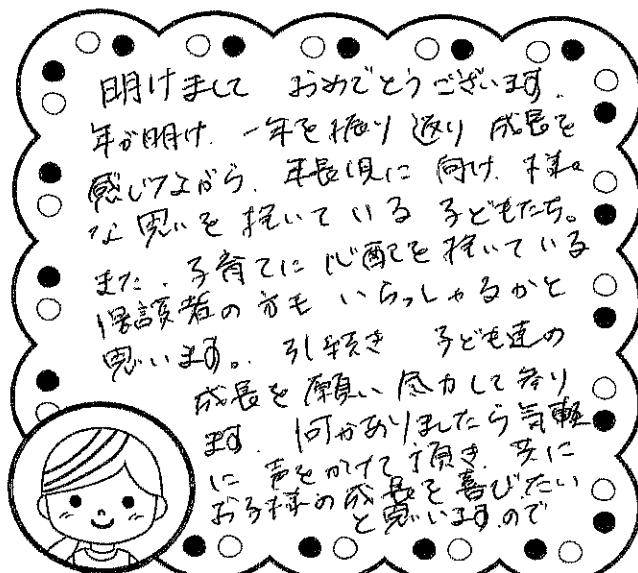 明けまして おめでとうございます.
年が明け. 一年を振り返り 成長を
感じながら. 年長児に 向け. 様々
な思いを抱いている 子どもたち。
また. 子育てに心配を抱いている
保護者の方も いらっしゃるかと
思います。. 引続き 子ども達の
成長を願い 尽力して参り
ます. 何かありましたら気軽
に 声をかけて頂き. 共に
お子様の成長を喜びたい
と思いますので